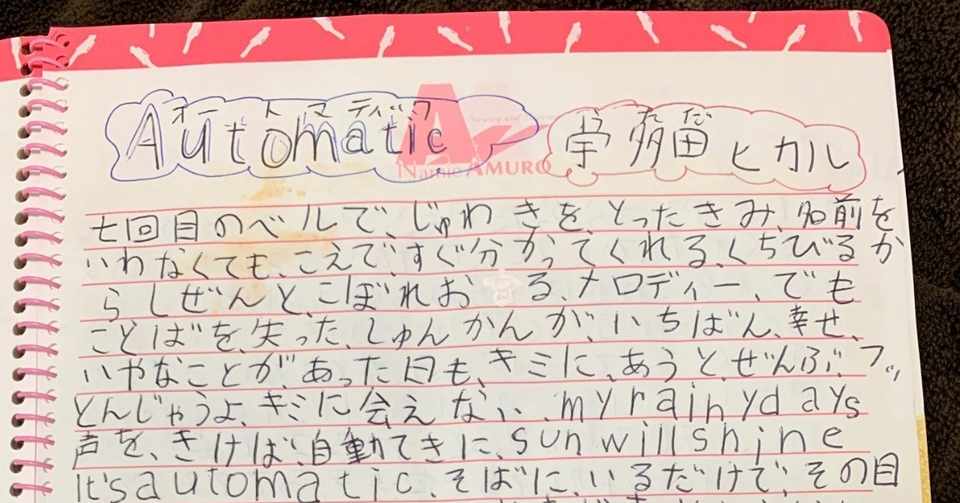 オートマティック
Automatic
A
Namie AMURO
う た だ
宇多田ヒカル
七回目のベルで、じゅわきをとったきみ、名前を
いわなくても、こえで、すぐ分かってくれる、くちびるか
らしぜんと、こぼれおる、メロディー、でも
ことばを、失った、しゅんかんが、いちばん、幸せ、
いやなことが、あった日も、キミに、あうと、ぜんぶ、フッ
とんじゃうよ、キミに会えない、my rainy days
声を、きけば、自動てきに、sun will shine
It's automatic、そばに、いるだけで、その目